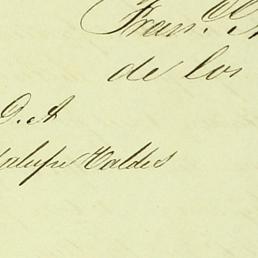 Fran.
de los
D. A
alupe Valdes